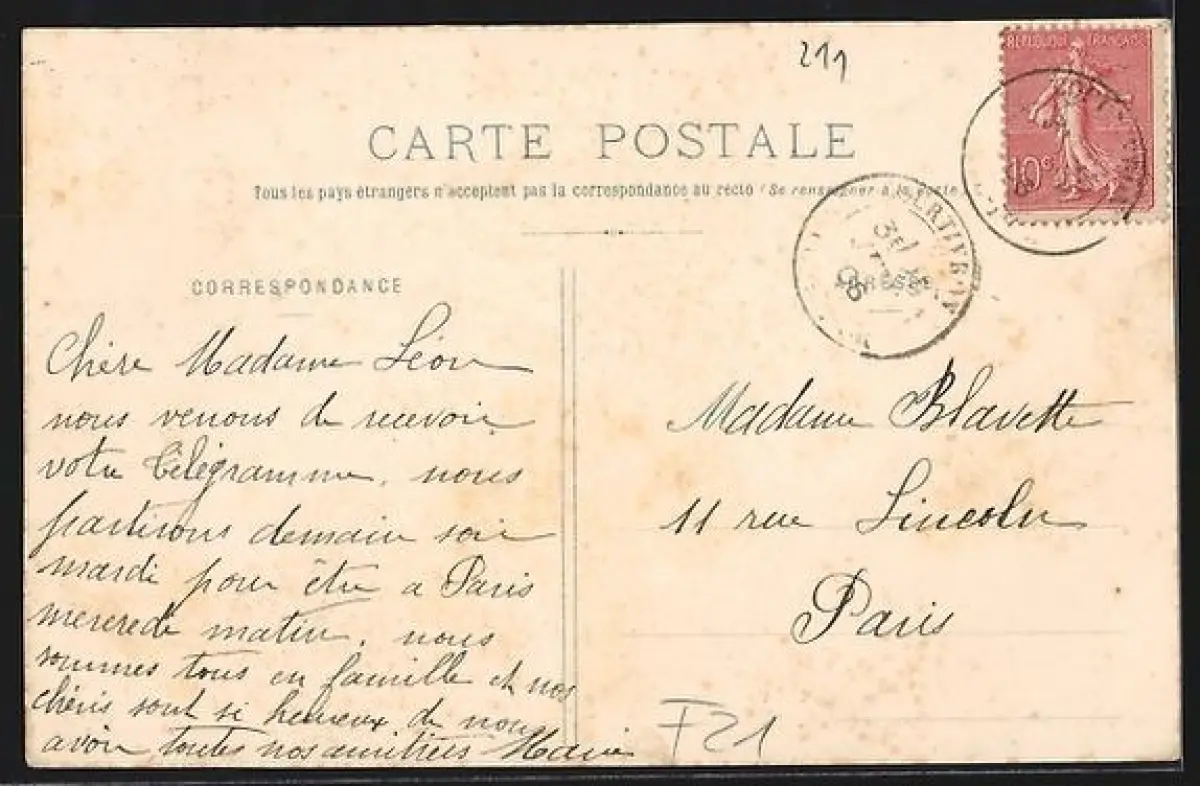 211
REPUBLIQUE FRANÇAISE
10c
CARTE POSTALE
Tous les pays étrangers n'acceptent pas la correspondance au recto (Se renseigner à la poste
CORRESPONDANCE
ADRESSE
Chère Madame Léon
nous venons de recevoir
votre télégramme, nous
partirons demain soir
mardi pour être a Paris
mercredi matin, nous
sommes tous en famille et nos
chéris sont si heureux de nous
avoir toutes nos amitiées Marie
Madame Blavette
11 rue Lincoln
Paris
F21